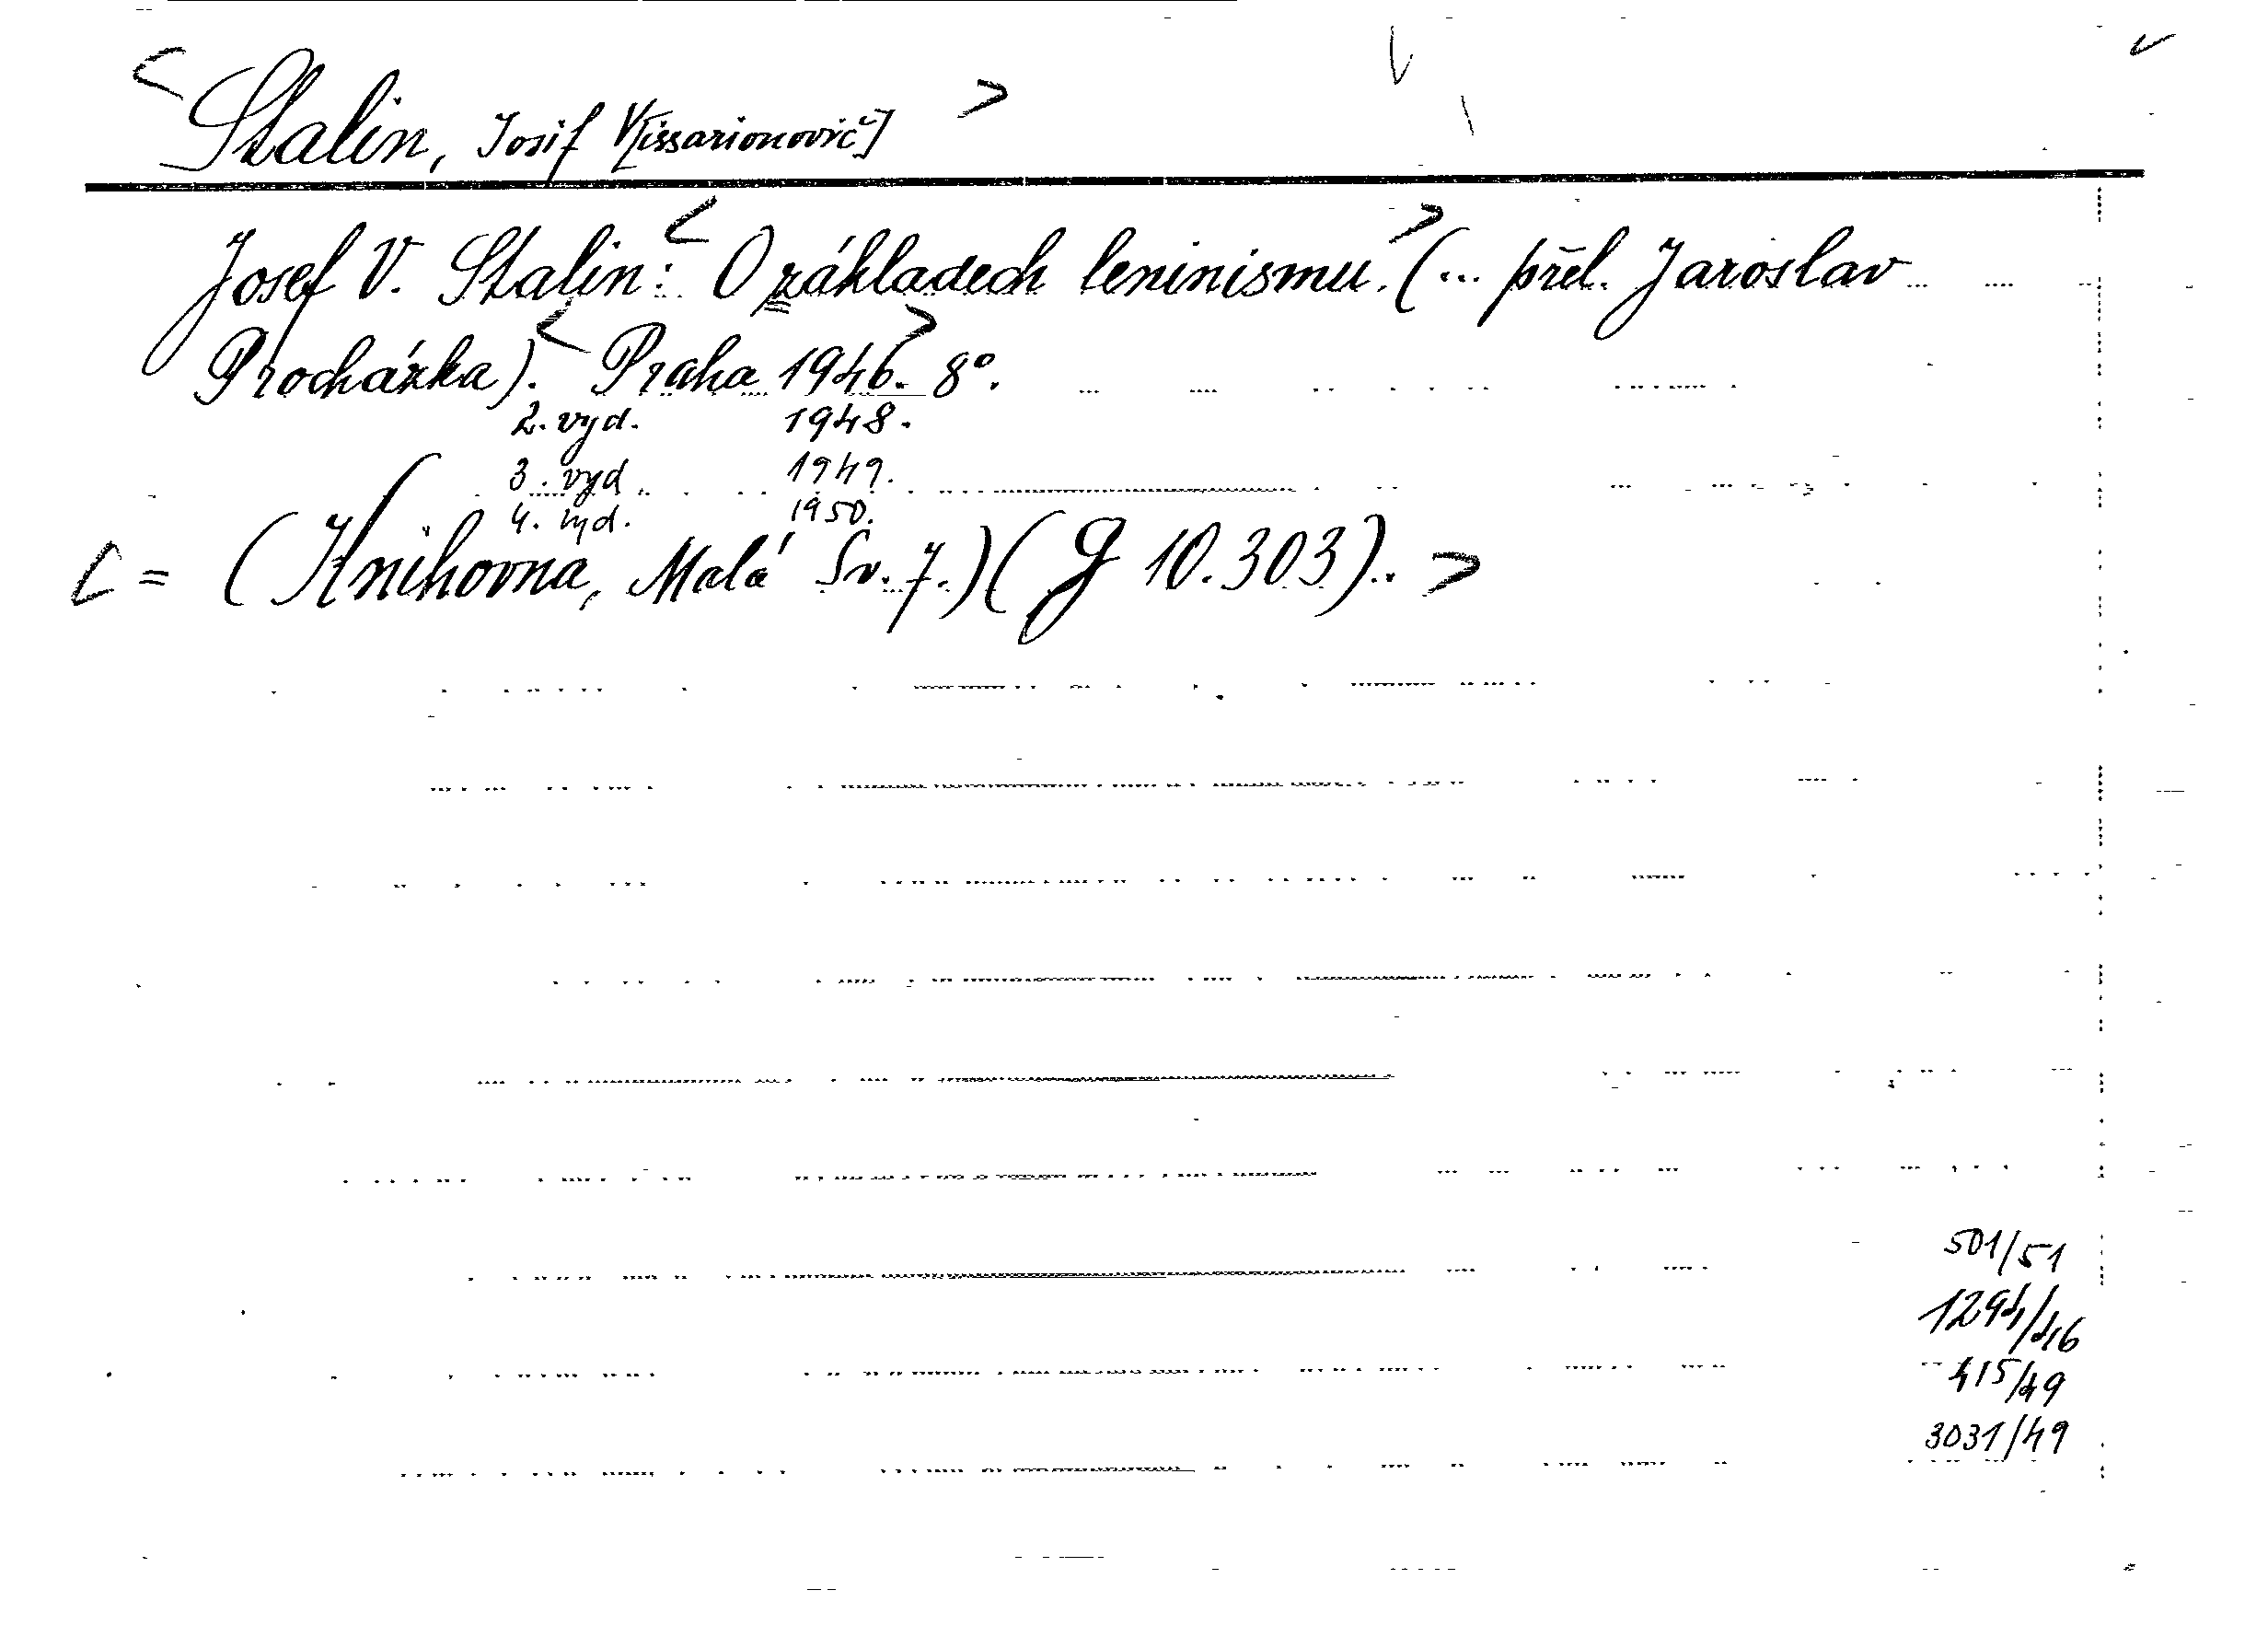 < Stalin, Josif V[issarionovič] >
Josef V. Stalin: < O základech leninismu. > (... přel. Jaroslav
Procházka). < Praha 1946. > 8°.
2. vyd. 1948.
3. vyd. 1949.
4. vyd. 1950.
< = (Knihovna, Malá Sv. 7.) (g 10.303).. >
501/51
1294/46
415/49
3031/49